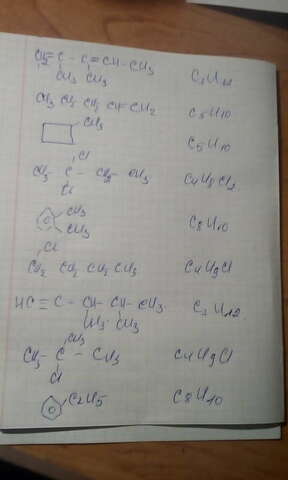 CH2=C - C=CH-CH3 C7H12
CH3 CH3
CH3 CH2 CH2 CH=CH2 C5H10
CH3 C5H10
Cl
CH3 - C - CH2 - CH3 C4H8Cl2
Cl
CH3 C8H10
CH3
Cl
CH2 CH2 CH2 CH3 C4H9Cl
HC≡C - CH-CH-CH3 C7H12
CH3 CH3
CH3
CH3-C - CH3 C4H9Cl
Cl
C2H5 C8H10